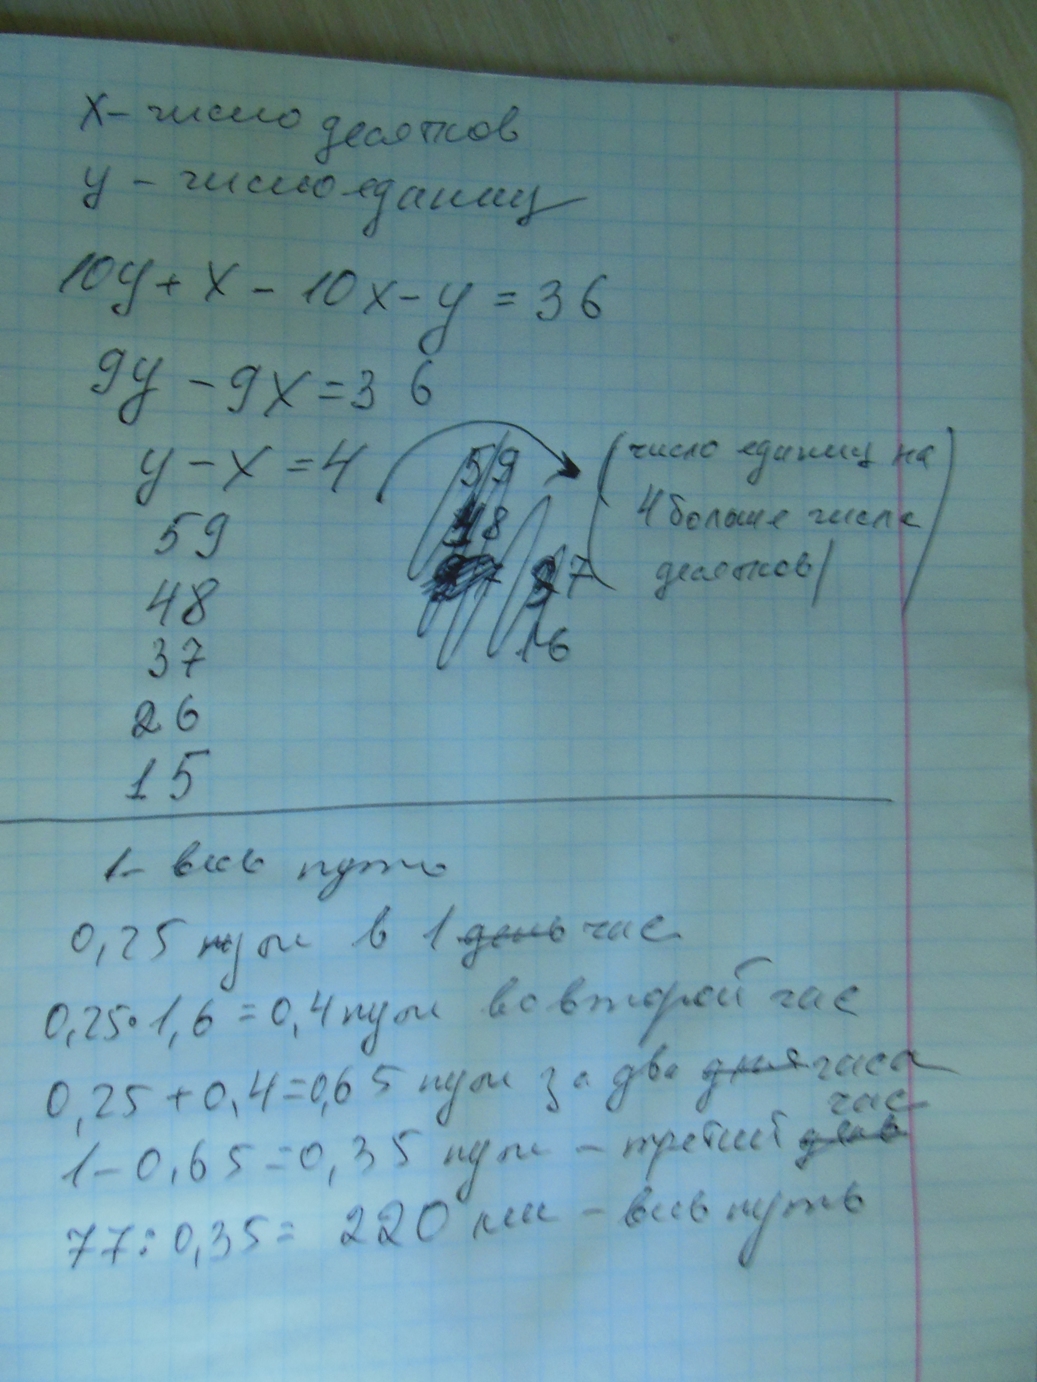 x - число десятков
y - число едениц
10y + x - 10x - y = 36
9y - 9x = 36
y - x = 4
(число едениц на
4 больше числа
десятков)
59
48
37
26
15
59
48
37
16
1 - весь путь
0,25 пути в 1 день час
0,25 · 1,6 = 0,4 пути во второй час
0,25 + 0,4 = 0,65 пути за два дня часа
1 - 0,65 = 0,35 пути - третий день час
77 : 0,35 = 220 км - весь путь